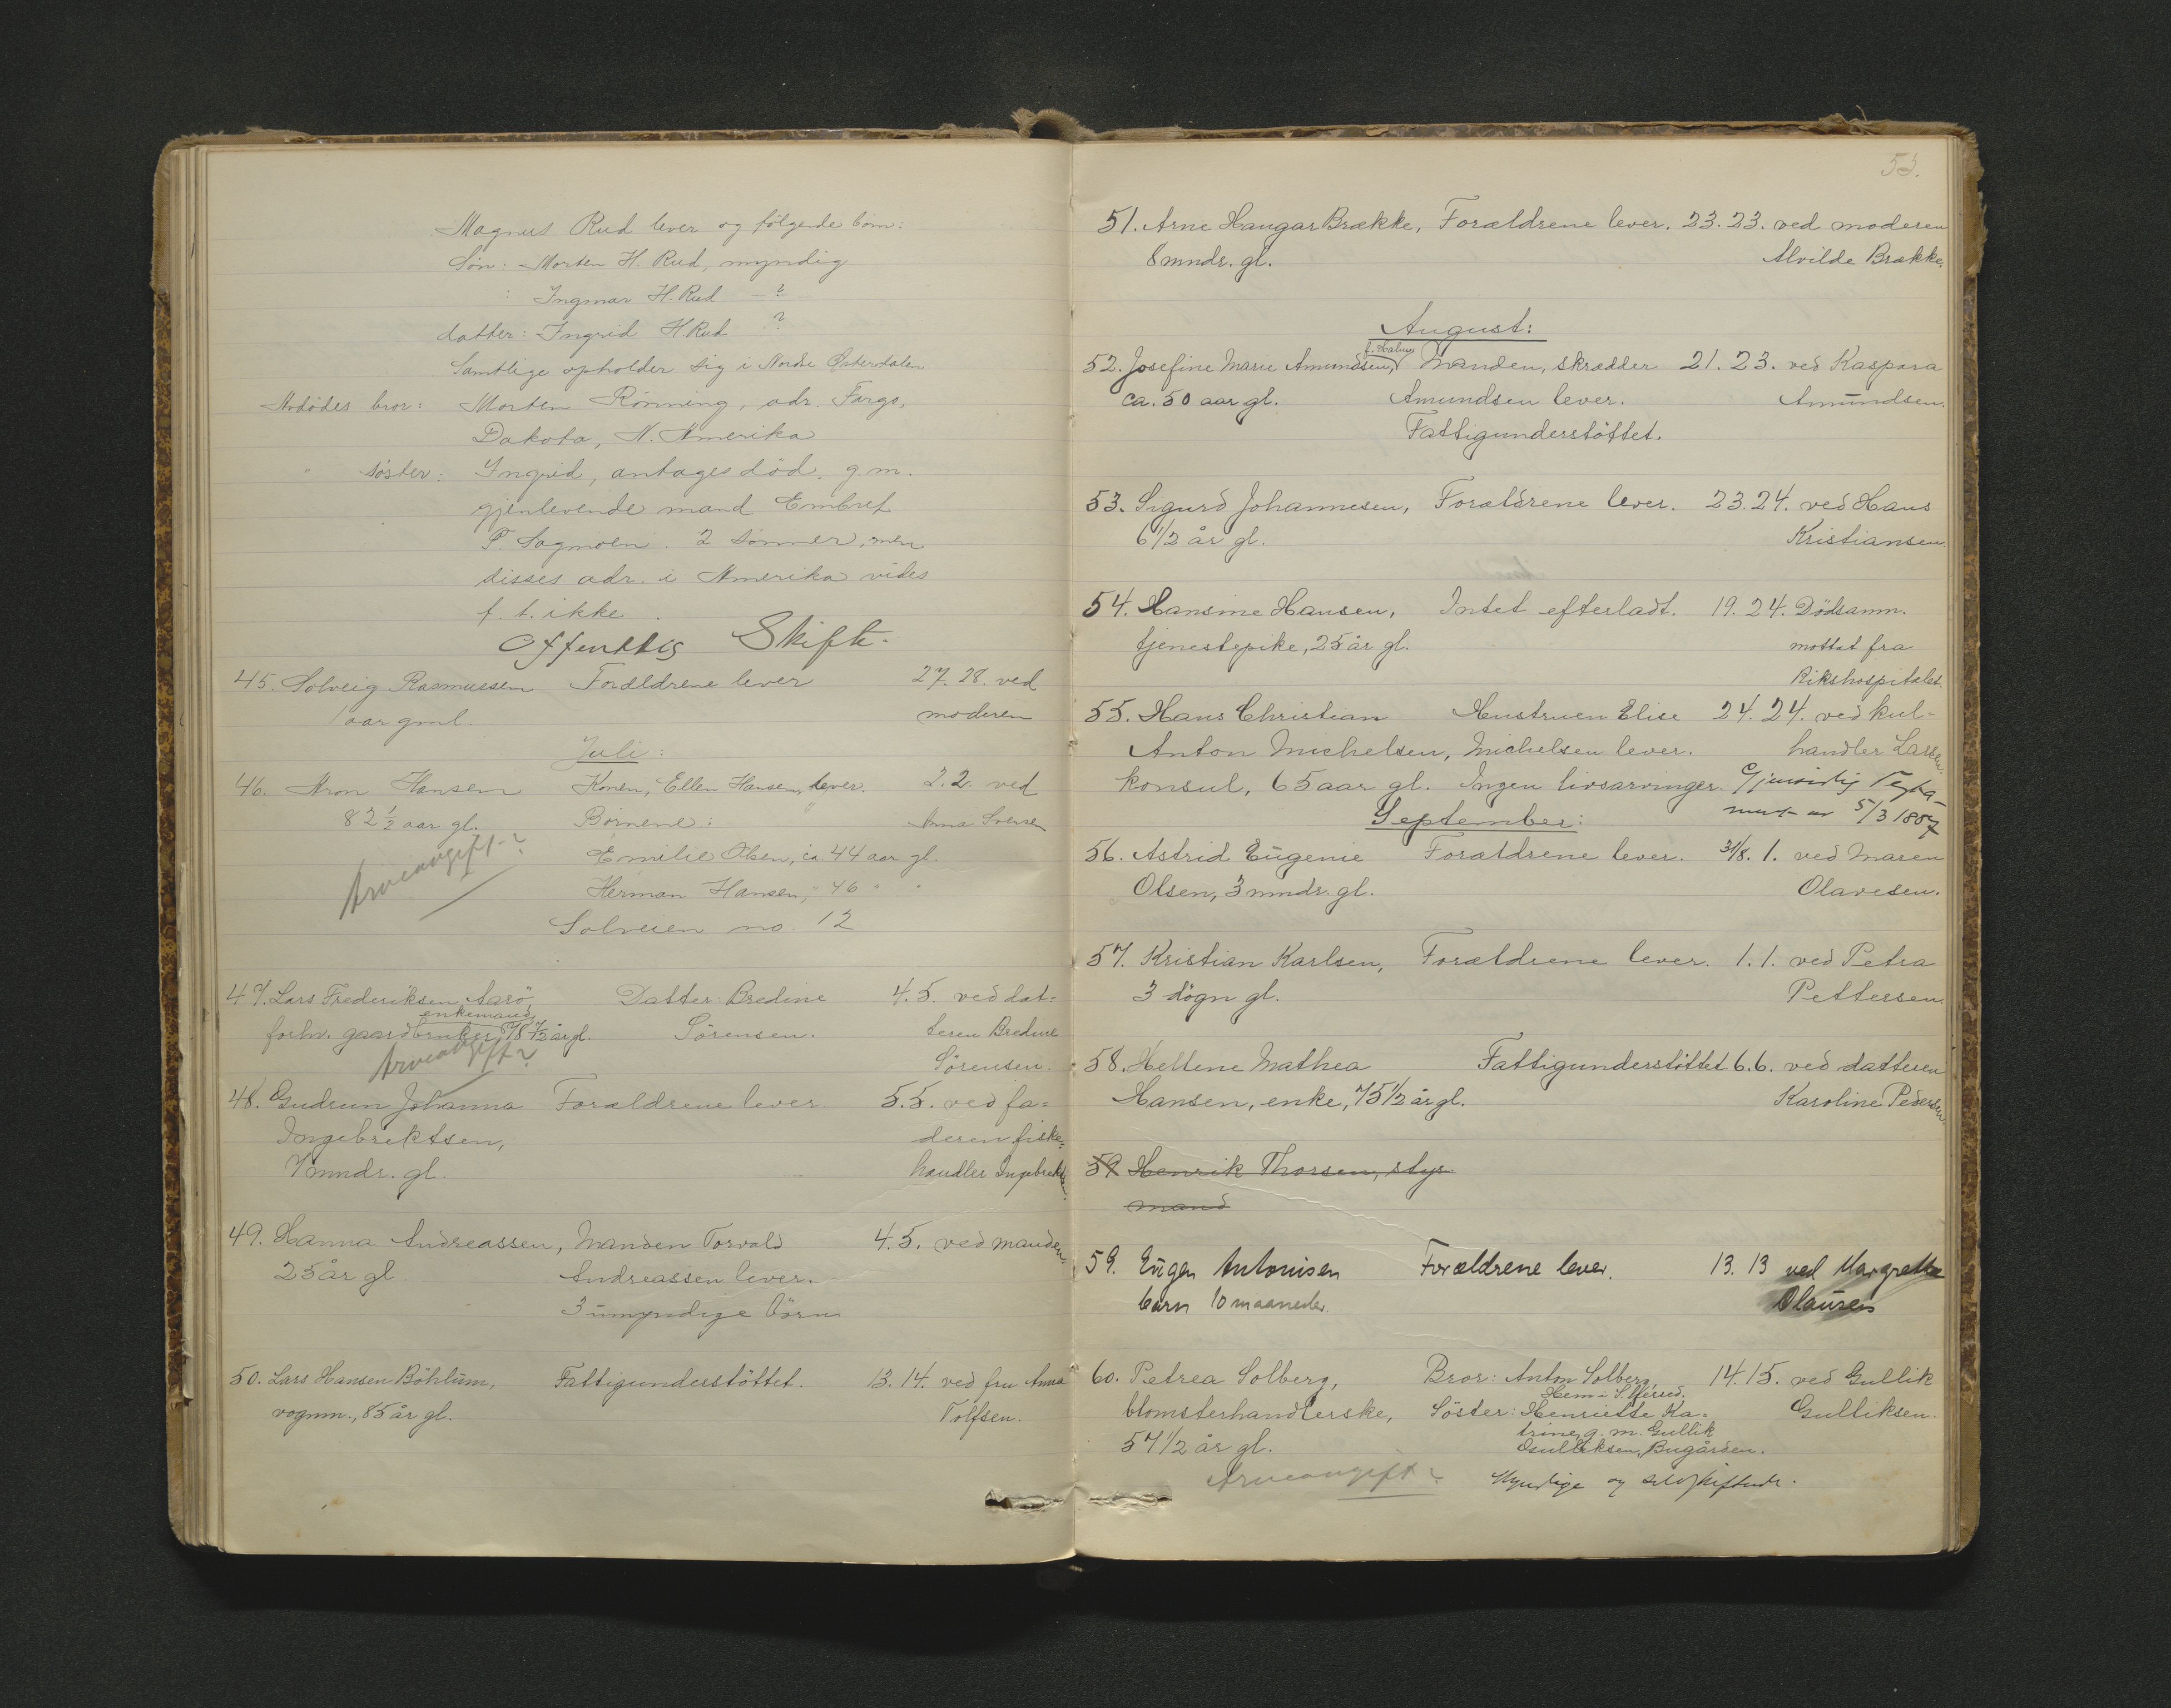 Magnus Rud lever og følgende børn:
Søn: Morten H. Rud, myndig
" Ingmar H. Rud - ? -
datter: Ingrid H. Rud ?
Samtlige opholder sig i Nordre Østerdalen
Avdødes bror: Morten Rønning, adr. Fargo,
Dakota, N. Amerika
" søster: Ingrid, antages død, g.m.
gjenlevende mand Embret
P. Sagmoen. 2 sønner, men
disses adr. i Amerika vides
f. t. ikke.
Offentlig Skifte.
45. Solveig Rasmussen Forældrene lever 27. 28. ved
1 aar gml. moderen
Juli:
46. Aron Hansen Konen, Ellen Hansen, lever. 2. 2. ved
82 1/2 aar gl. Børnene: Anna Svensen
Arveavgift?
Emilie Olsen, ca. 44 aar gl.
Herman Hansen, " 46 " "
Solveien no. 12
47. Lars Frederiksen Aarö, Datter: Bredine 4. 5. ved dat=
enkemand
forhv. gaardbruker, 78 1/2 år gl. Sörensen. teren Bredine
Arveavgift? Sörensen.
48. Gudrun Johanna Forældrene lever 5. 5. ved fa=
Ingebrektsen, deren fiske=
7 mndr. gl. handler Ingebrektsen.
49. Hanna Andreassen, Manden Torvald 4. 5. ved manden.
25 år gl. Andreassen lever.
3 umyndige börn
50. Lars Hansen Böhlum, Fattigunderstöttet. 13. 14. ved fru Anna
vognm., 85 år gl. Tolfsen.
53.
51. Arne Haugar Brække, Forældrene lever. 23. 23. ved moderen
8 mndr. gl. Alvilde Brække.
August:
52. Josefine Marie Amundsen, Manden, skrædder 21. 23. ved Kaspara
ca. 50 aar gl. Amundsen lever. Amundsen.
Fattigunderstöttet.
53. Sigurd Johannesen, Forældrene lever. 23. 24. ved Hans
6 1/2 år gl. Kristiansen.
54. Hansine Hansen, Intet efterladt. 19. 24. Dödsanm.
tjenestepike, 25 år gl. mottat fra
Rikshospitalet.
55. Hans Christian Hustruen Elise 24. 24. ved kul=
Anton Michelsen, Michelsen lever. handler Larsen.
konsul, 65 aar gl. Ingen livsarvinger. Gjensidig Testa-
ment av 5/3 1887
September:
56. Astrid Eugenie Forældrene lever. 31/8. 1. ved Maren
Olsen, 3 mndr. gl. Olavesen.
57. Kristian Karlsen, Forældrene lever. 1. 1. ved Petra
3 dögn gl. Pettersen.
58. Hellene Mathea Fattigunderstöttet 6. 6. ved datteren
Hansen, enke, 75 1/2 år gl. Karoline Pedersen
59 Henrik Thorsen, styr
mand
59. Eugen Antonisen Forældrene lever. 13. 13 ved Margrethe
barn 10 maaneder. Olausen
60. Petrea Solberg, Bror: Anton Solberg, 14. 15. ved Gullik
Hem i
blomsterhandlerske, Söster: Henriette Ka= Gulliksen.
trine, g. m. Gullik
57 1/2 år gl. Gulliksen, Bugården.
Arveavgift? Myndige og selvskiftende.